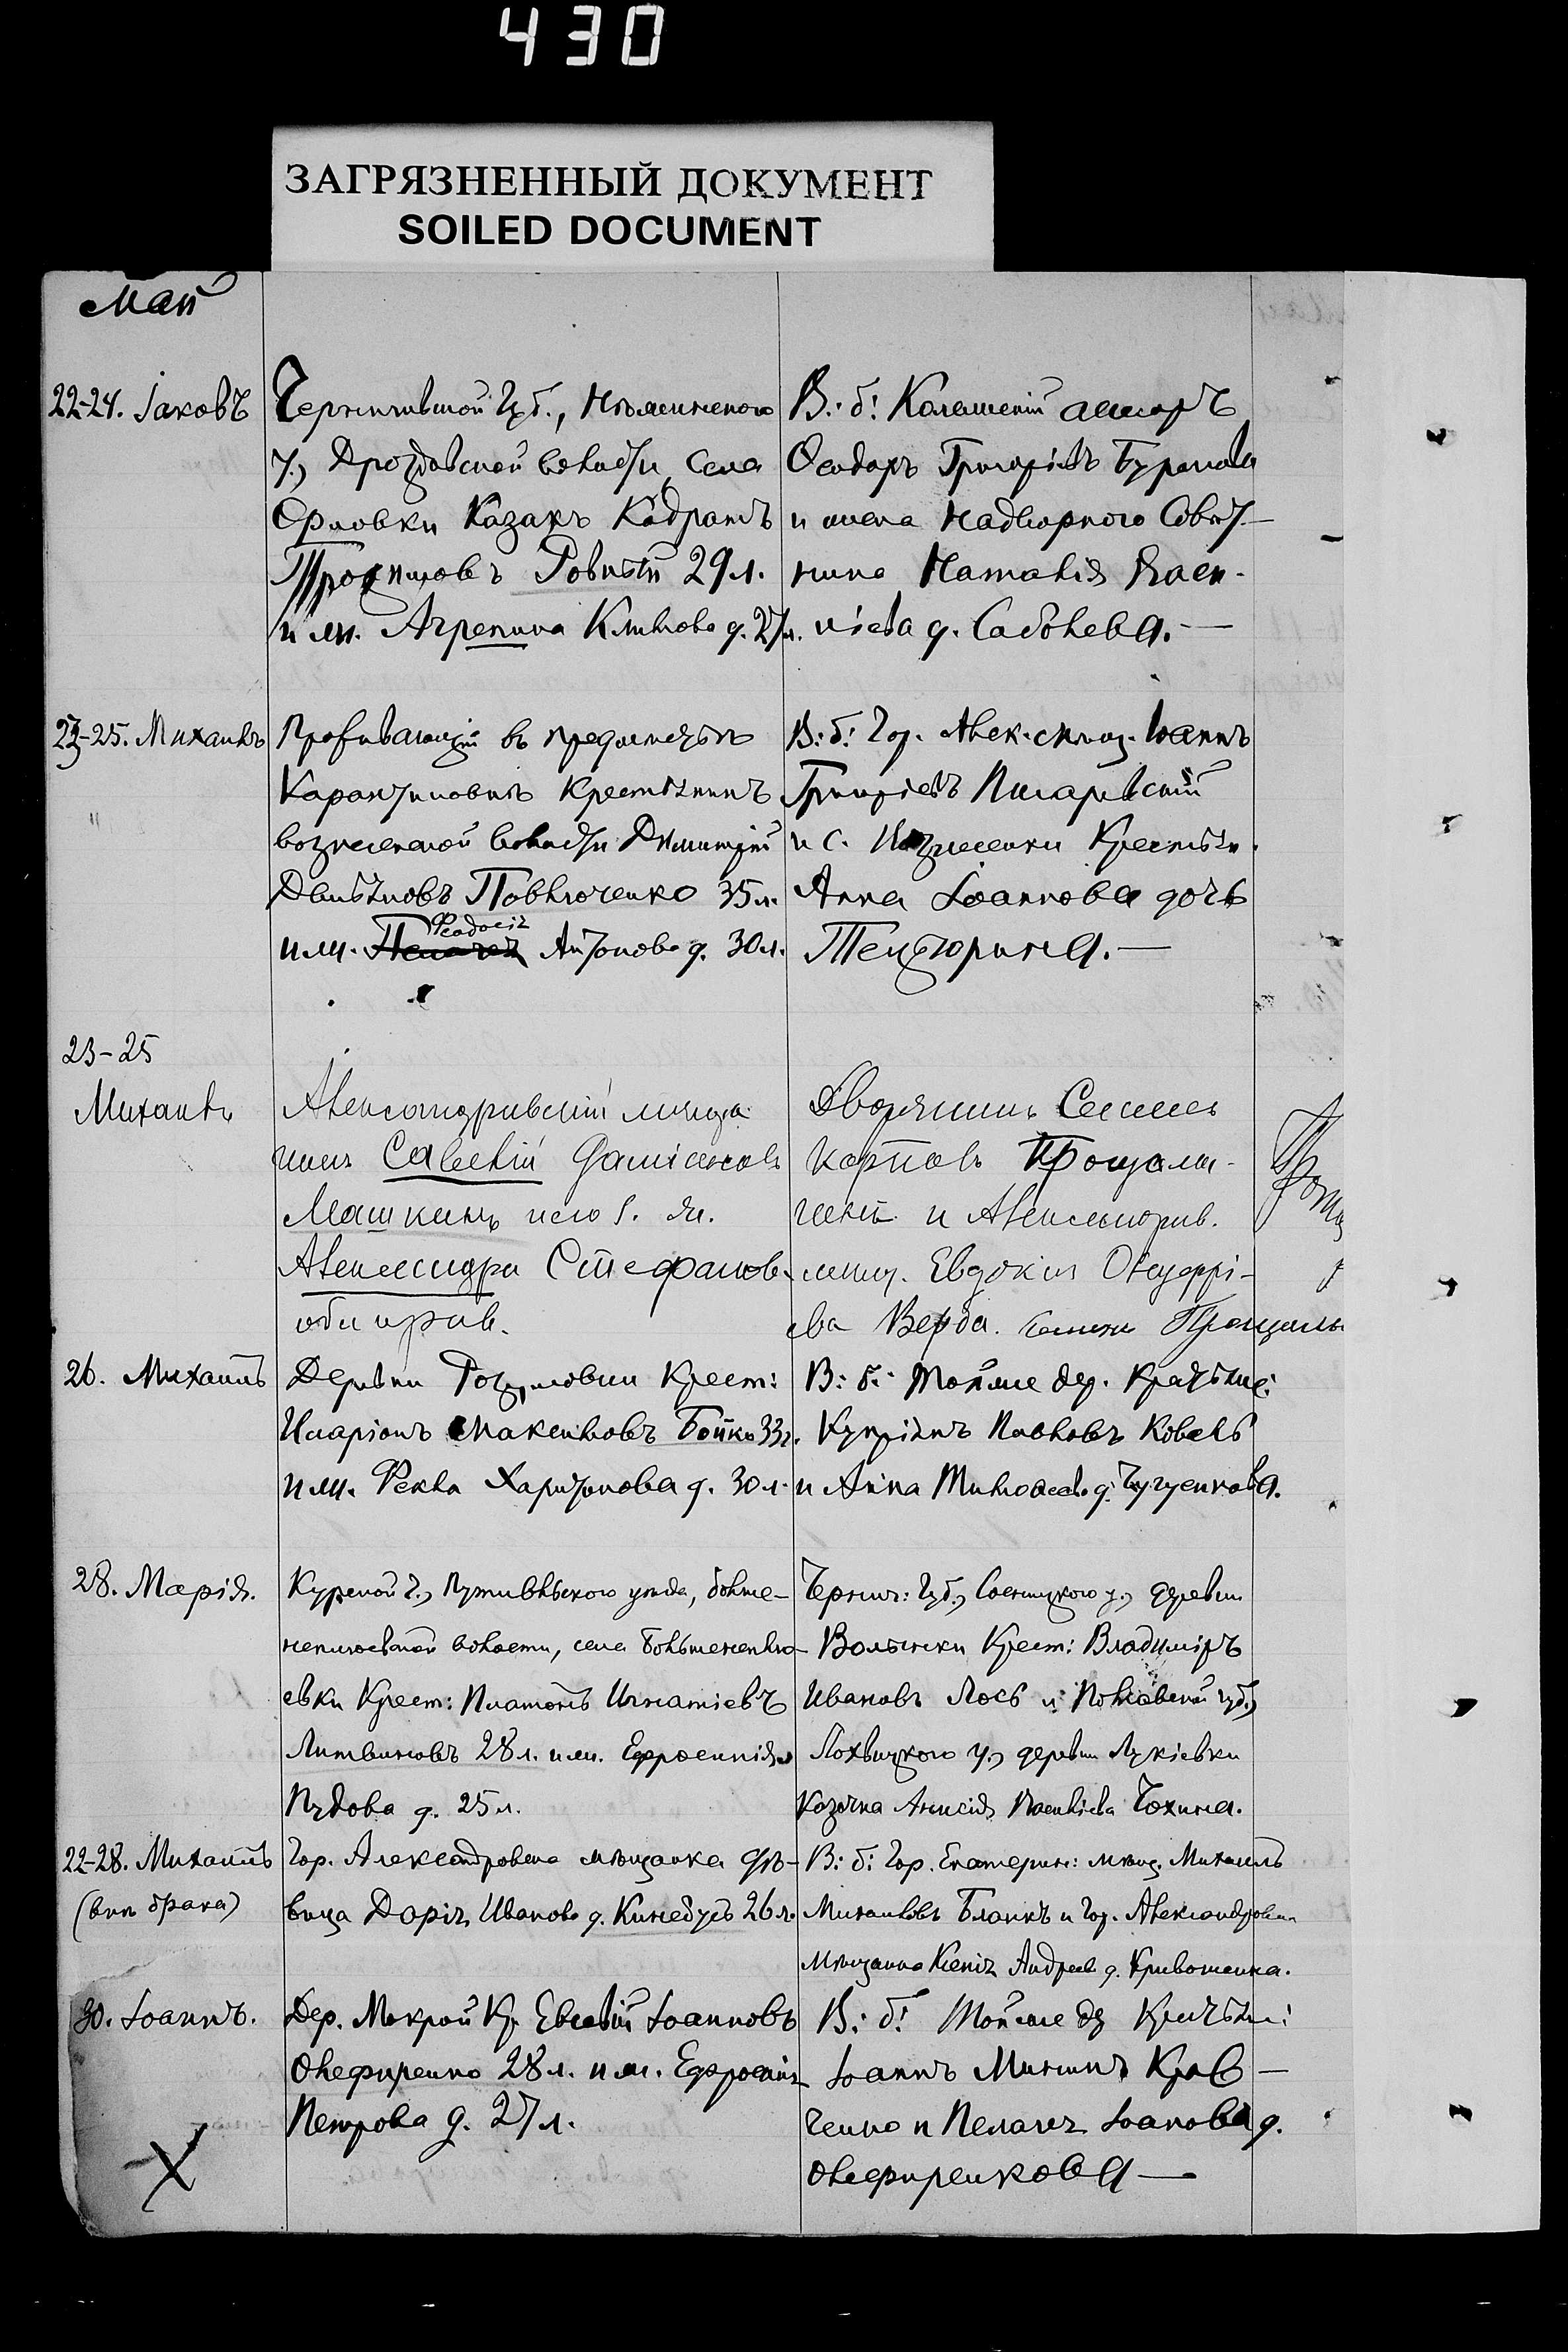 430
ЗАГРЯЗНЕННЫЙ ДОКУМЕНТ
SOILED DOCUMENT
Май
22-24. Іаковъ
Черниговской Губ., Нѣжинскаго
У., Дроздовской волости, села
Орловки Казакъ Кодратъ
Трофимовъ 29 л.
и жн. Агрепина Климова д. 27 л.
В: б: Колежскій асесоръ
Феодоръ Григоріевъ Буракова
и жена Надворного Совѣт-
ника Наталія
д. Саболева.—
23-25. Михаилъ
Проживающій въ предмѣстьѣ
Карантиновкѣ Крестьянинъ
вознесенской волости Димитрій
Даміяновъ Повлюченко 35 л.
и жн. Феодосія Антонова д. 30 л.
В: б: Гор. Алек-ска мѣщ. Іоаннъ
Григоріевъ Писаревскій
и с. Вознесенки Крестьян.
Анна Іоаннова дочь
23-25
Михаилъ
Александровскій мѣща
нинъ Савелій Даміановъ
Машкинъ и его з. жн.
Александра Стефанов.
оби прав.
Дворянинъ Семенъ
Карповъ
и Александров.
мѣщ. Евдокія
ева Верба.
26. Михаилъ
Деревни Розумовки Крест:
Иларіонъ Макеимовъ Бойко 33 г.
и жн. Фекла Харитонова д. 30 л.
В: б: Той же дер. Крестьяне:
Купріянъ Павловъ Коваль
и Анна д. Чугуенкова.
28. Марія.
Курской г., Путивльского уѣзда, больше-
неплюевской волости, села Большенеплю-
евки Крест: Платонъ Игнатіевъ
Литвиновъ 28 л. и жн. Ефросинія
Пудова д. 25 л.
Черниг: Губ., Сосницкого у., деревни
Волынки Крест: Владиміръ
Ивановъ Лось и Полтавской губ.,
Лохвицкого у., деревни Лукіевки
Козачка Анисія Чохина.
22-28. Михаилъ
(внѣ брака)
Гор. Александровска мѣщанка дѣ-
вица Дарія Иванова д. Кинебусъ 26 л.
В: б: Гор. Екатерин: мѣщ. Михаилъ
Михаиловъ Бланкъ и Гор. Александровска
мѣщанка Ксенія Андреев. д. Кривошеика.
30. Іоаннъ.
Дер. Мокрой Кр. Евсевій Іоанновъ
Олефиренко 28 л. и жн. Ефросинія
Петрова д. 27 л.
В: б: Той же де Крестьяне:
Іоаннъ Мининъ Крав—
ченко и Пелагея Іоанова д.
Олефиренкова—